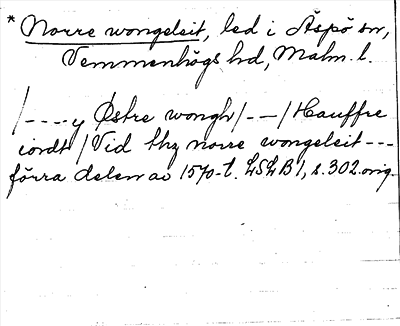 * Norre wongeleit, led i Äspö sn,
Vemmenhögs hd, Malm. l.
/---- y Østre wongh/--/Hauffre
iordt/Vid thz norre wongeleit---
förra delen av 1570-t. LSLB 1, s. 302. orig.